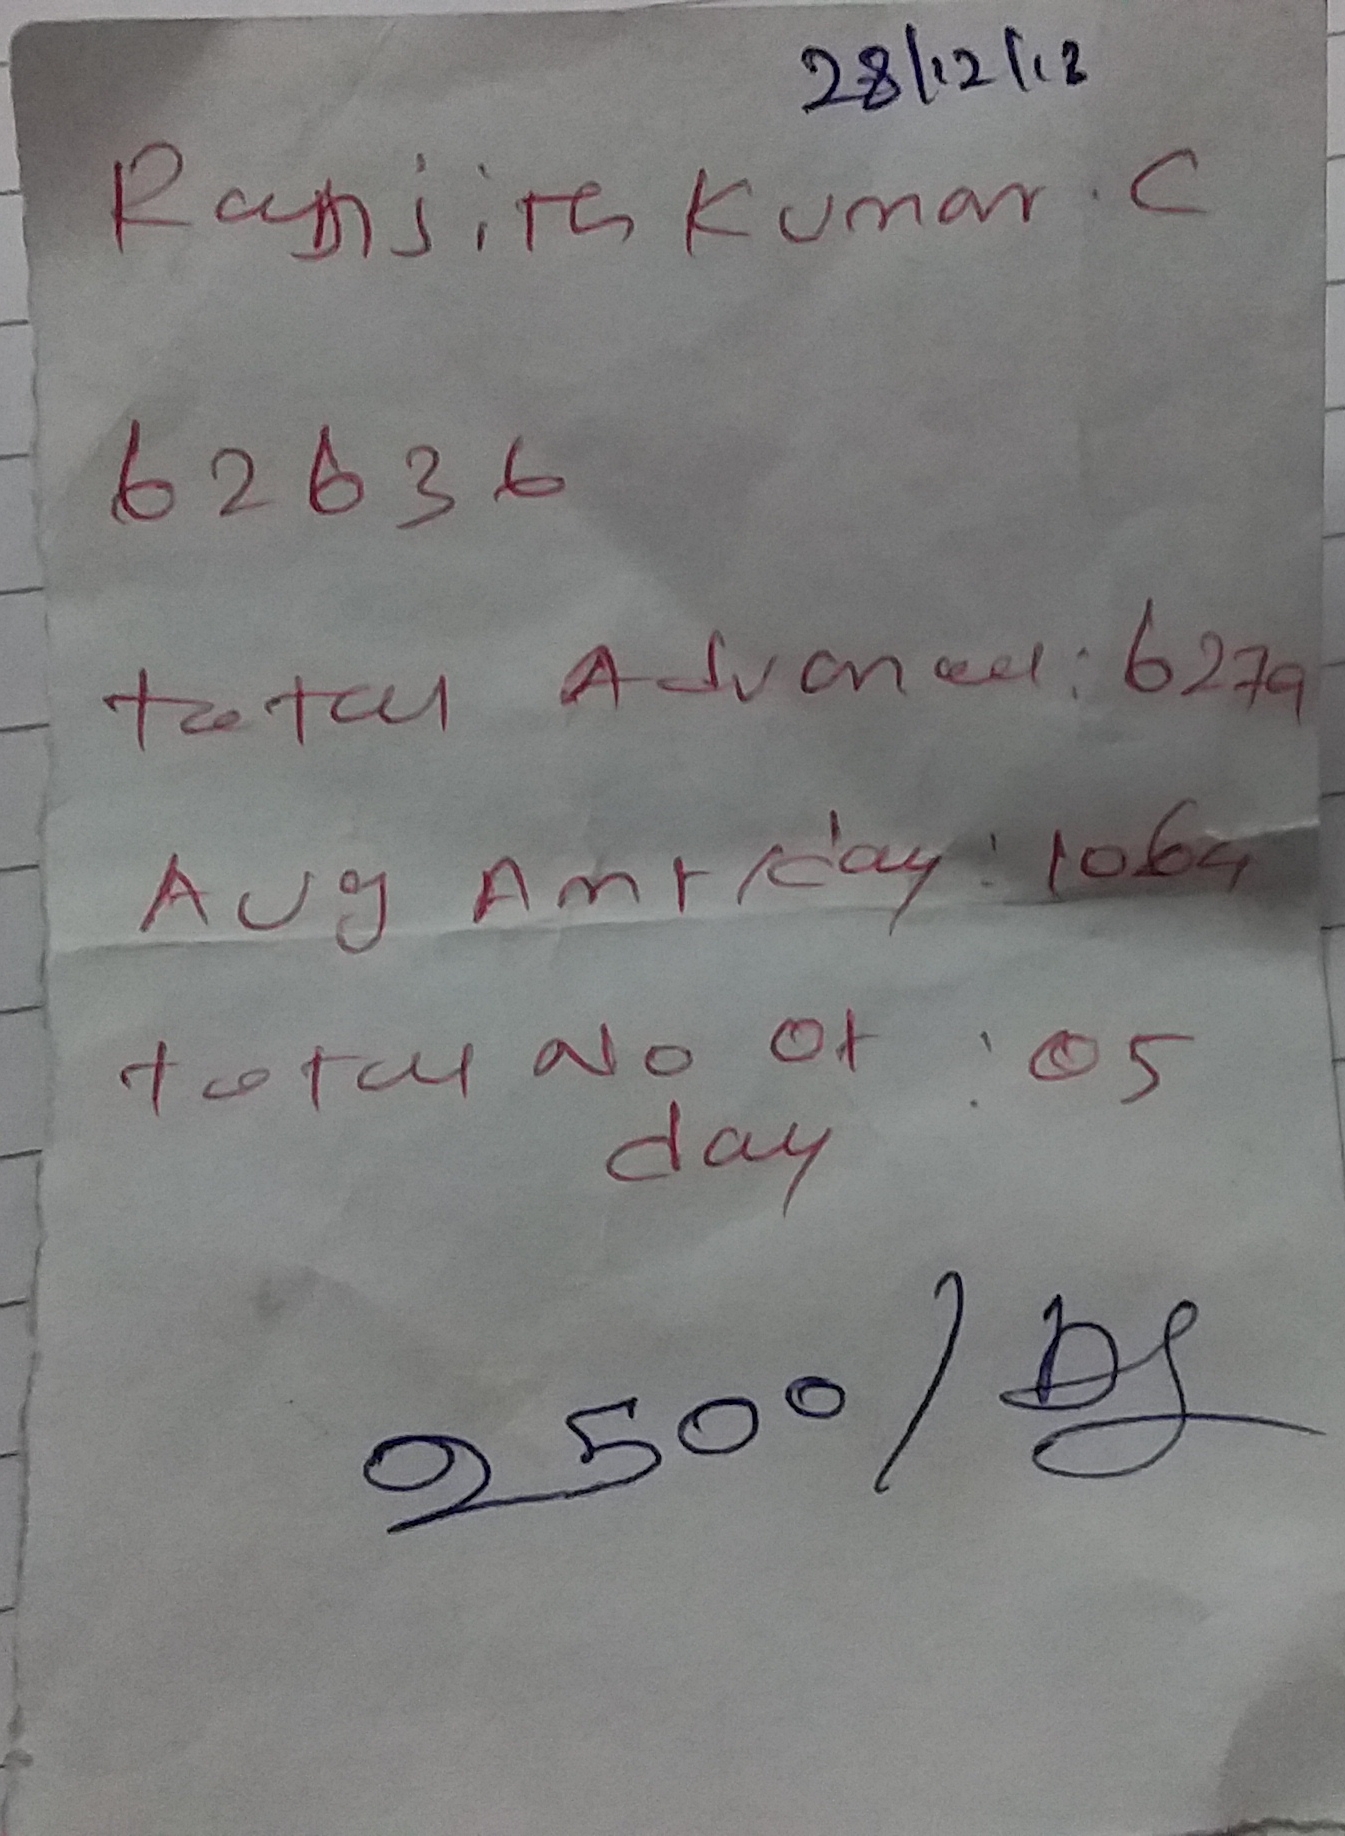 28/12/18
Ranjith Kumar. C
62636
total Advanced: 6279
Avg Amt/day: 1064
total No of : 05
day
2500/